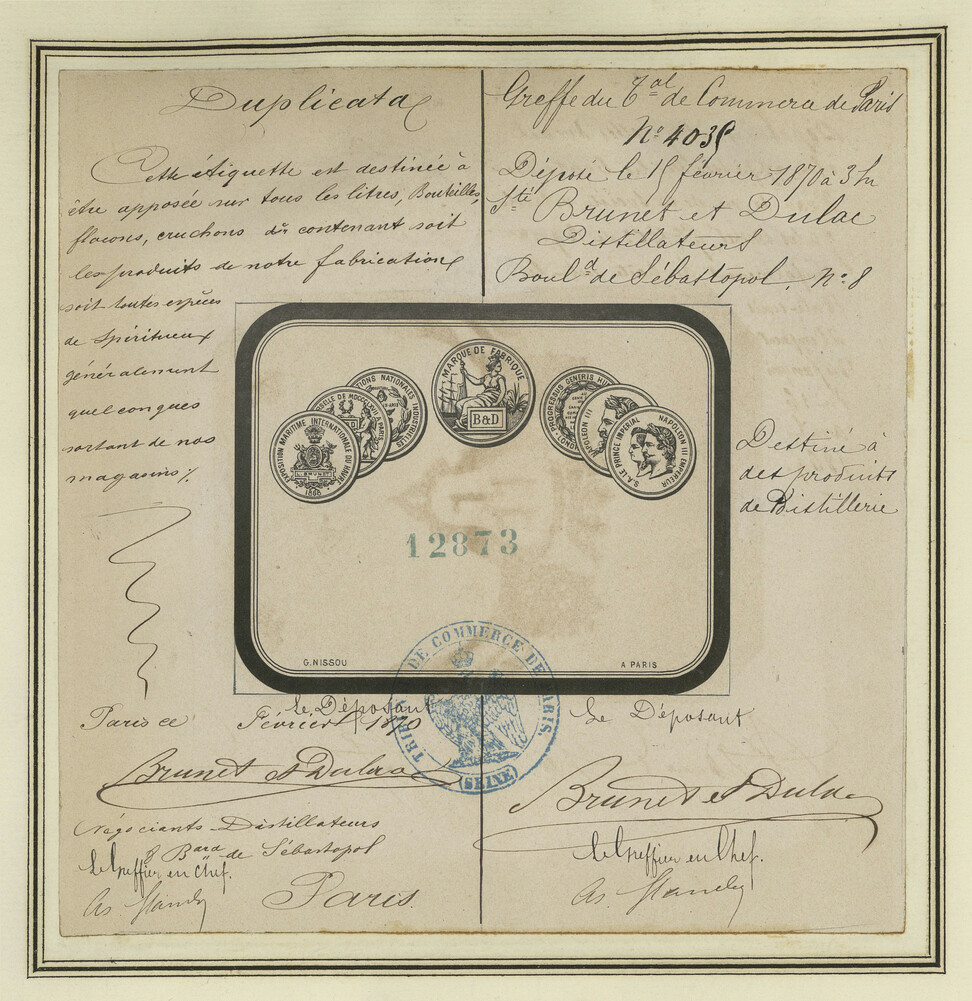 Duplicata
Cette étiquette est destinée à
être apposée sur tous les litres, Bouteilles,
flacons, cruchons contenant soit
les produits de notre fabrication
soit toutes espèces
de Spiritueux
généralement
quelconques
sortant de nos
magasins
Greffe du Tal de Commerce de Paris
No 4035
Déposé le 15 février 1870 à 3 h
Sté Brunet et Dulac
Distillateurs
Bould de Sébastopol, No 8
MARQUE DE FABRIQUE
B&D
EXPOSITION MARITIME INTERNATIONALE DU HAVRE
L. BRUNET
1868
PARIS
NATIONALES INDUSTRIELLES
PROGRESSUS GENERIS
NAPOLEON III
S.A. LE PRINCE IMPERIAL NAPOLEON III EMPEREUR
Destiné à
des produits
de Distillerie
12873
G. NISSOU
A PARIS
TRIBUNAL DE COMMERCE DE PARIS.
SEINE
le Déposant
Paris ce Février 1870
Brunet et Dulac
Négociants Distillateurs
8 Bard de Sébastopol
le Greffier en Chef.
Paris
Le Déposant
Brunet et Dulac
le Greffier en Chef.